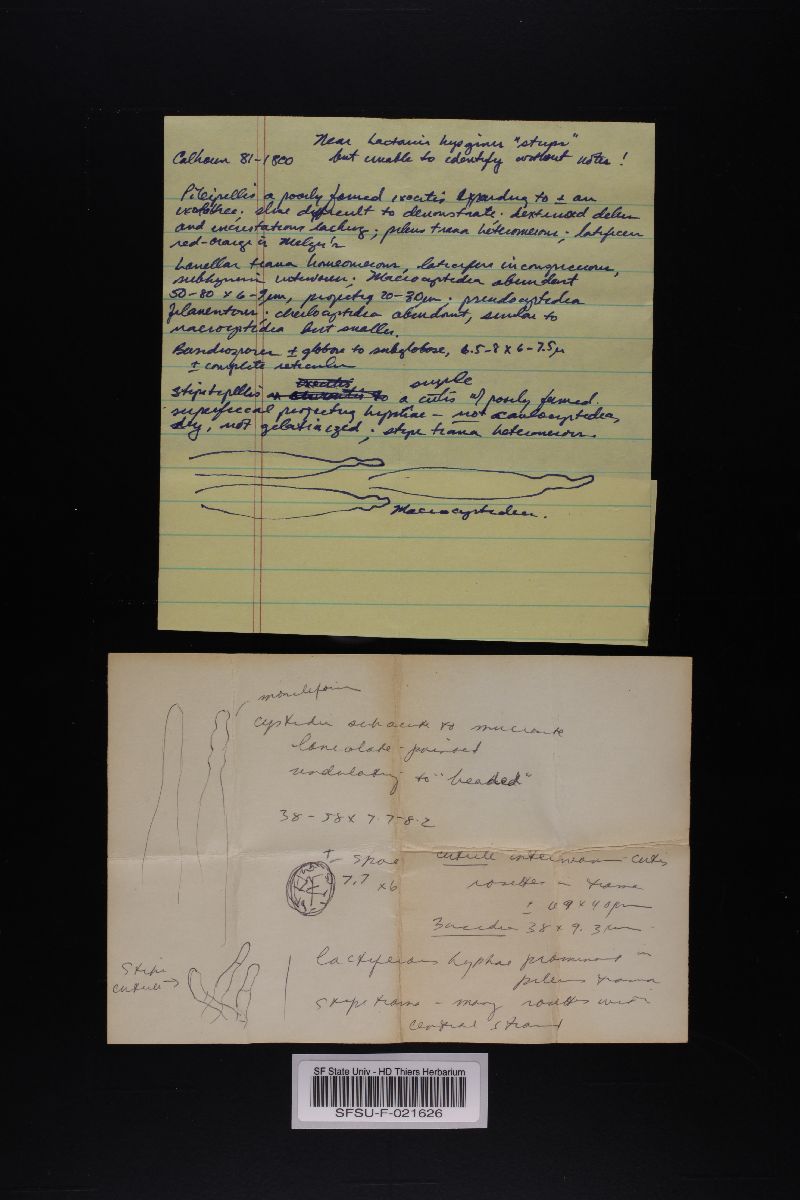 Near Lactarius hysginus "stups"
Calhoun 81-1800 but unable to identify without notes!
Pileipellis a poorly formed ixocutis to ± an
; slime difficult to demonstrate. dextrinoid
and incrustations lacking; pileus trama heteromerous;
red-orange in Melzer's
Lamellar trama homeomerous, laticifers inconspicuous,
subhymenium interwoven; Macrocystidia abundant
50-80 x 6-9µm, projecting 20-30µm; pseudocystidia
filamentous; cheilocystidia abundant, similar to
macrocystidia but smaller.
Basidiospores ± globose to subglobose, 6.5-8 x 6-7.5µ
± complete reticulum
Stipitipellis a cutis w/ poorly formed
superficial projecting hyphae - not caulocystidia,
dry, not gelatinized; stipe trama heteromerous.
Macrocystidia.
moniliform
cystidia subacute to mucronate
lanceolate-pointed
undulating to "headed"
38-58 x 7.7-8.2
± spore
7.7 x 6
cuticle interwoven cutis
rosettes in trama
± 69 x 40µm
Basidia 38 x 9.3µm
lactiferous hyphae prominent in
pileus trama
Stipe
cuticle →
Stipe trama - many rosettes with
central strand
SF State Univ - HD Thiers Herbarium
SFSU-F-021626